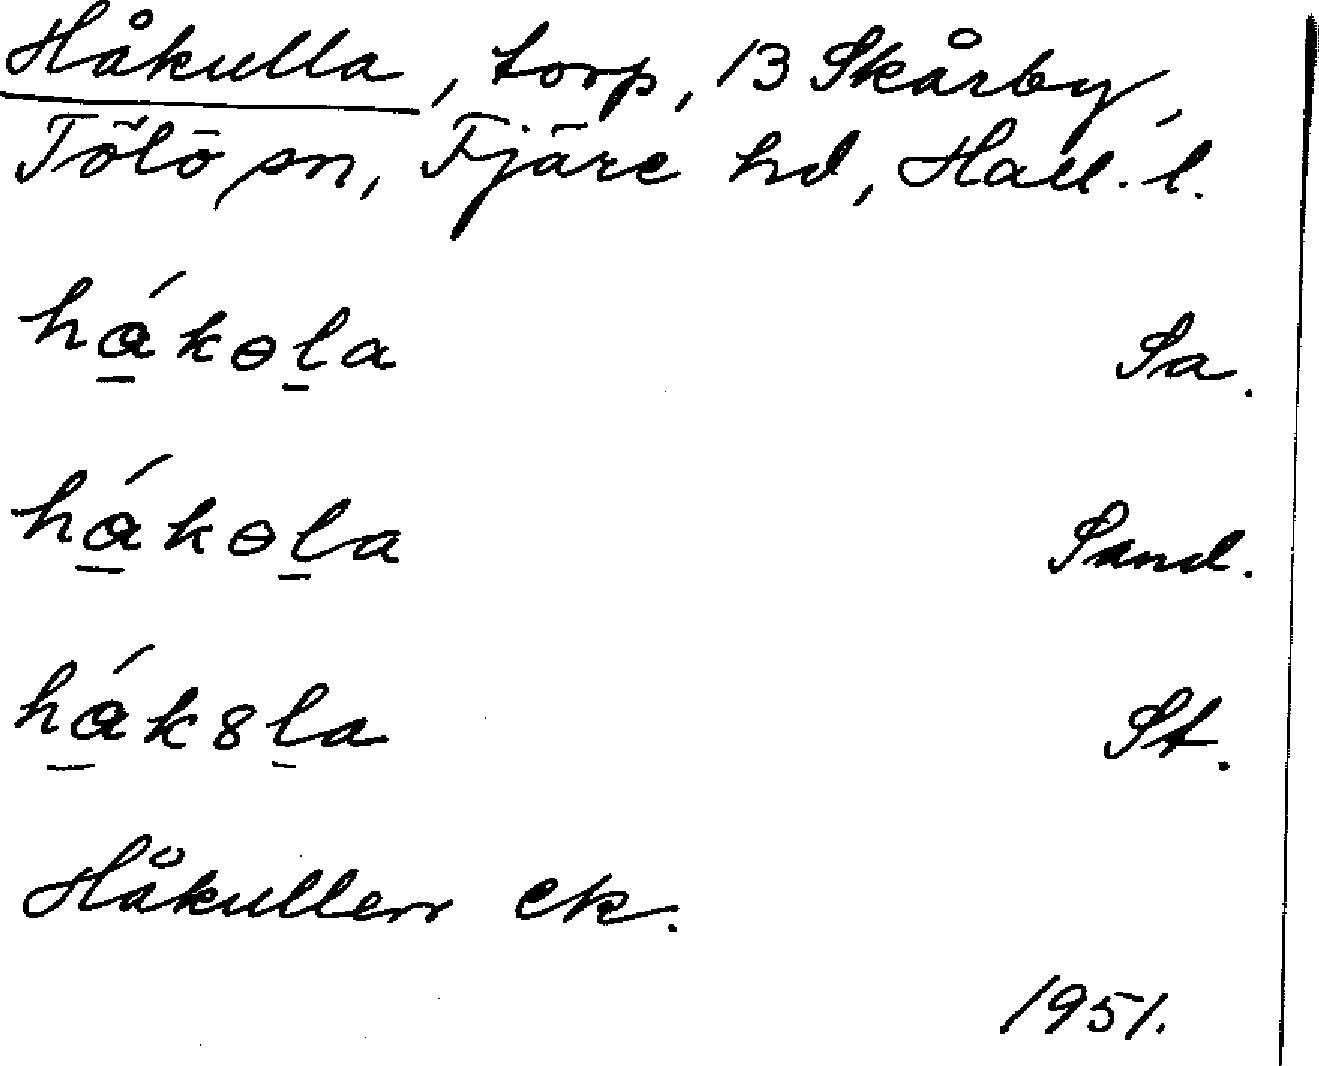 Håkulla, torp, 13 Skårby,
Tölö sn, Fjäre hd, Hall. l.
hák​ɵla Sa.
hákɵla Sand.
hák8la St.
Håkullen ek.
1951.